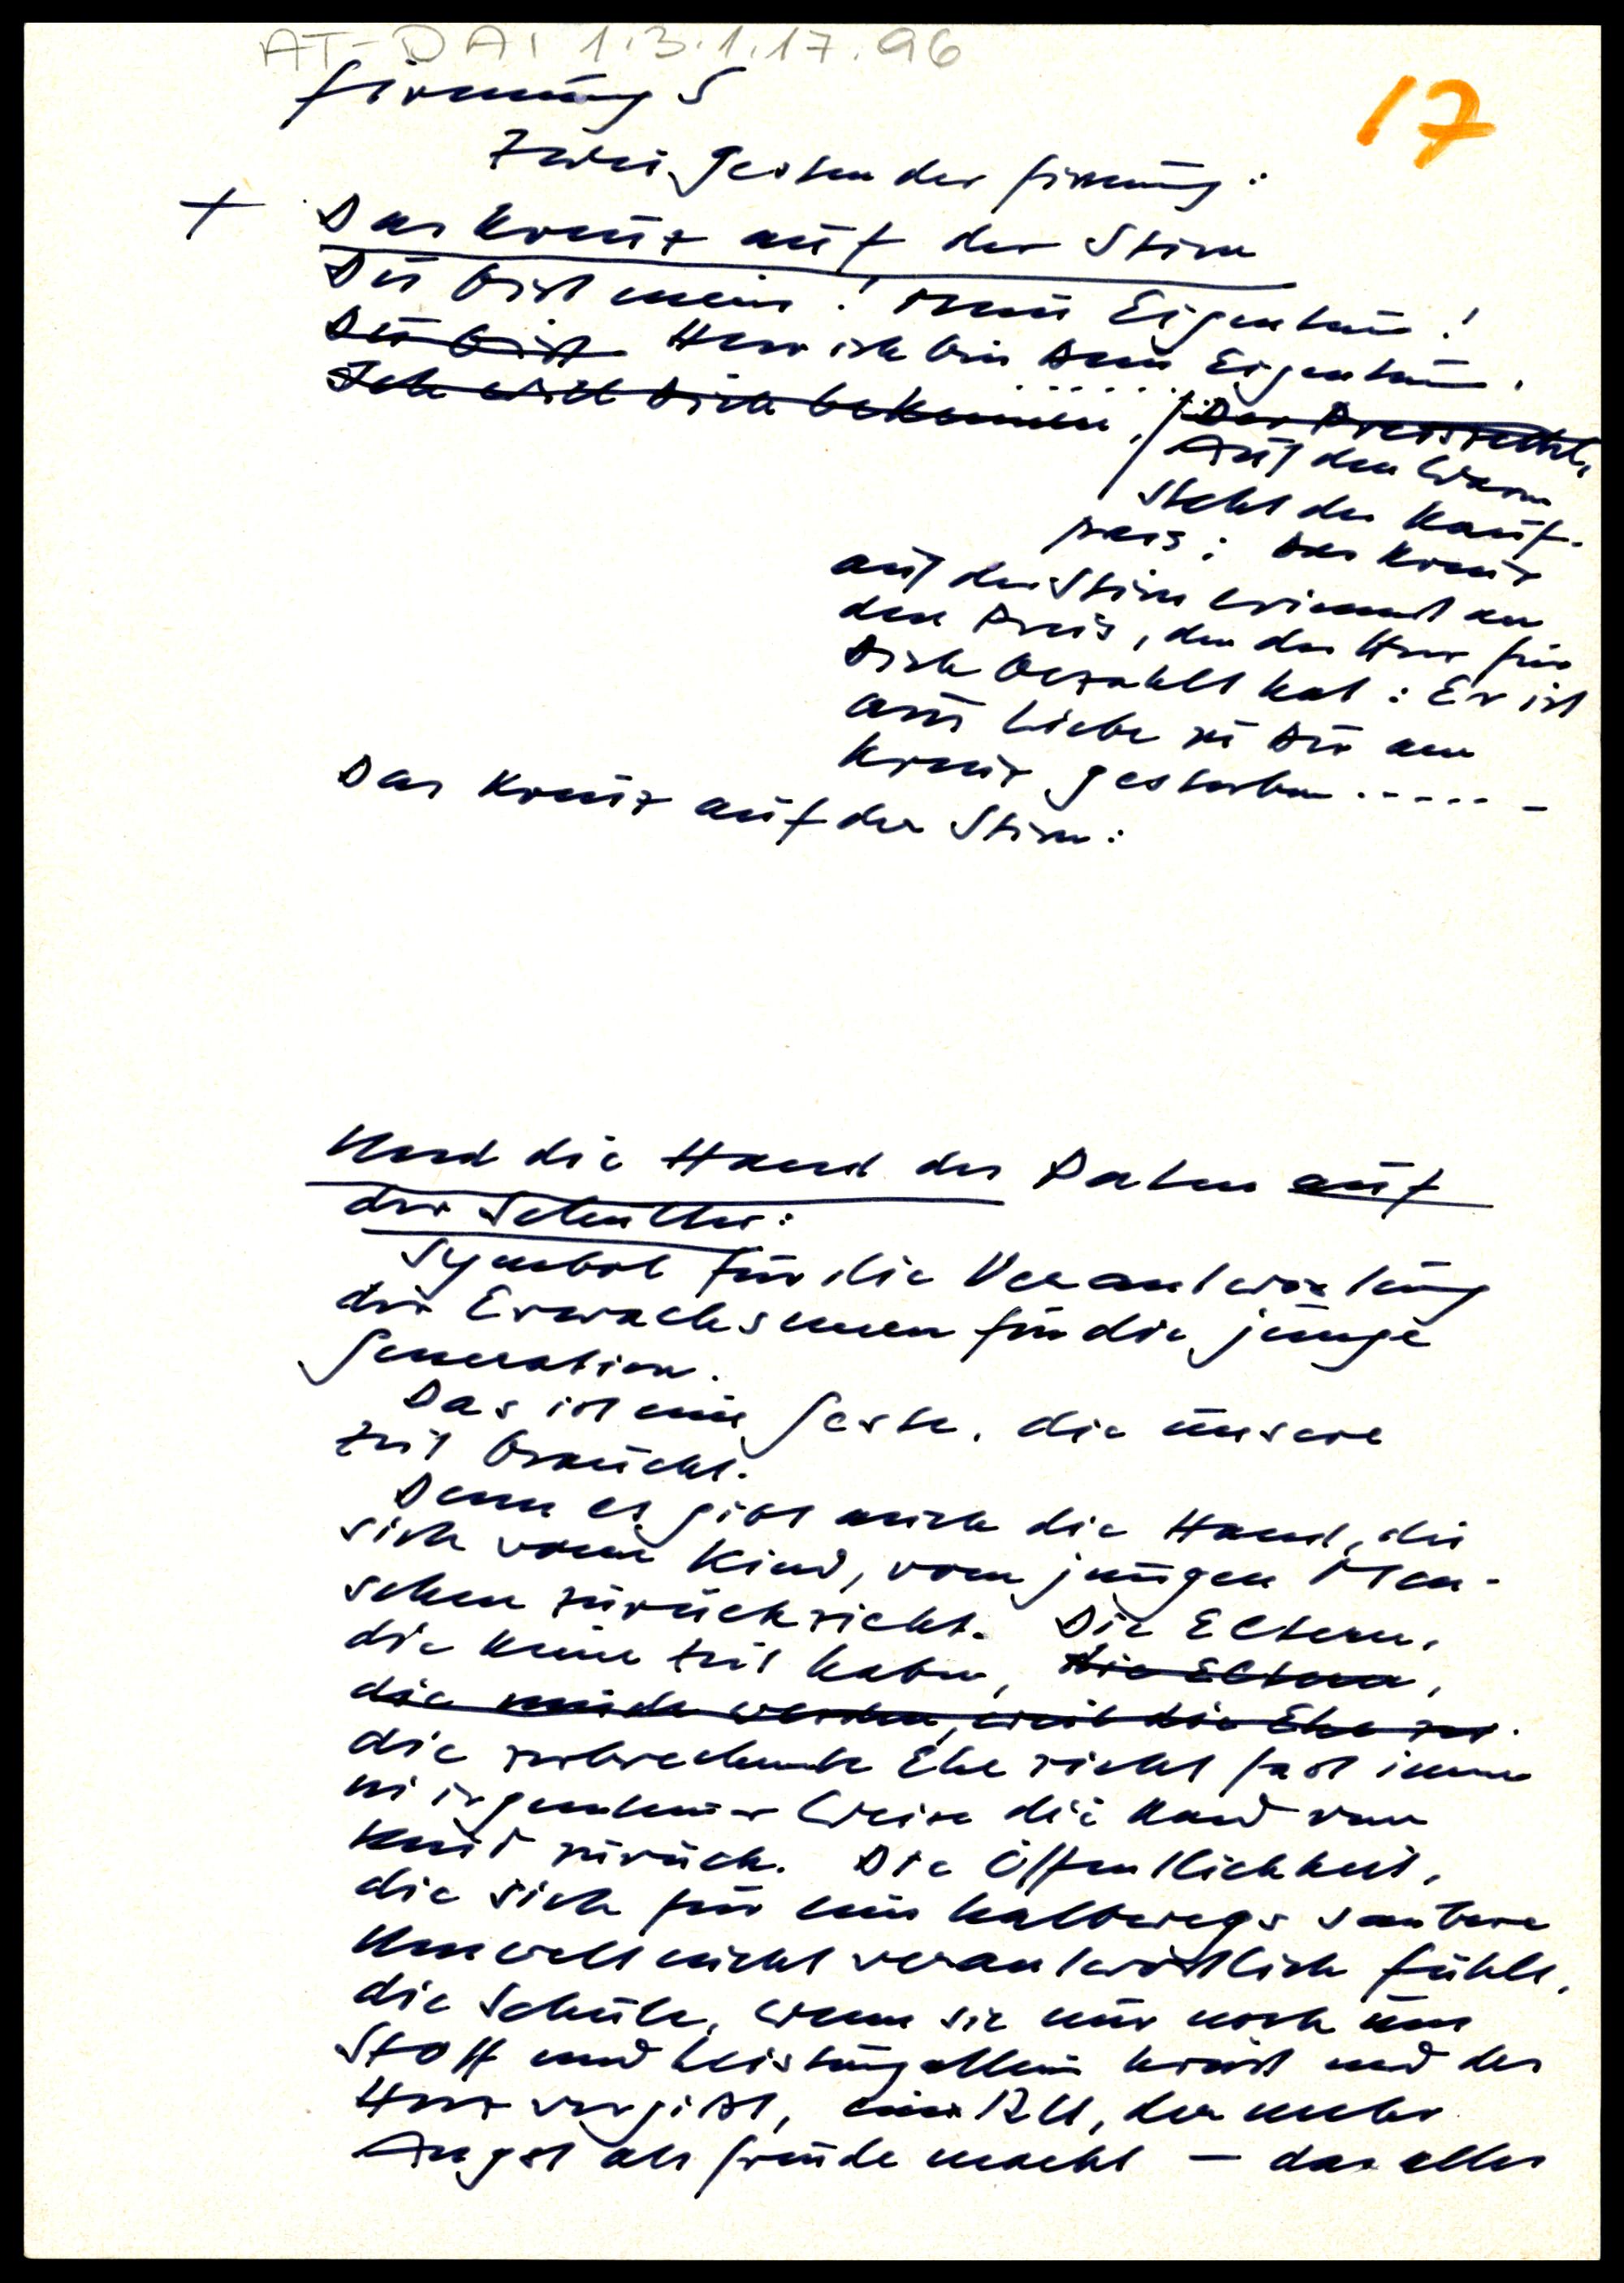 AT-DAI 1.3.1.17.96
17
Firmung S
Zwei Gesten der Firmung:
+ Das Kreuz auf der Stirn
Du bist mein! Mein Eigentum!
Du bist Herr ich bin Dein Eigentum.
Ich will Dich bekennen. Der Preiszettel,
Auf den Waren
steht der Kauf-
preis: Das Kreuz
auf der Stirn erinnert an
den Preis, den der Herr für
Dich bezahlt hat: Er ist
aus Liebe zu Dir am
Kreuz gestorben ......
Das Kreuz auf der Stirn:
Und die Hand des Paten auf
der Schulter:
Symbol für die Verantwortung
der Erwachsenen für die junge
Generation.
Das ist eine Geste, die unsere
Zeit braucht.
Denn es gibt auch die Hand, die
sich vom Kind, vom jungen Men-
schen zurückzieht. Die Eltern,
die keine Zeit haben, die Eltern,
die müde werden, weil die Ehe zer
die zerbrechende Ehe zieht fast immer
in irgendeiner Weise die Hand vom
Kind zurück. Die Öffentlichkeit,
die sich für eine halbwegs saubere
Umwelt nicht verantwortlich fühlt,
die Schule, wenn sie nur noch um
Stoff und Leistung allein kreist und das
Herz vergißt, ein RU, der mehr
Angst als Freude macht – das alles